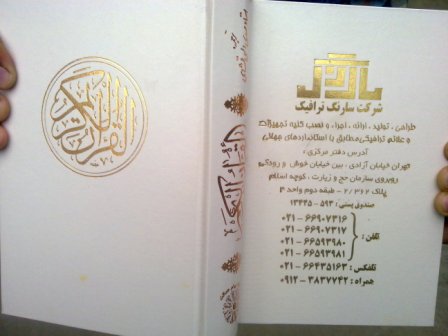 القرآن الكريم
القرآن الكريم
سارنگ
شرکت سارنگ ترافیک
طراحی ، تولید ، ارائه ، اجراء و نصب کلیه تجهیزات
و علائم ترافیکی مطابق با استانداردهای جهانی
آدرس دفتر مرکزی :
تهران خیابان آزادی ، بین خیابان خوش و رودکی
روبروی سازمان حج و زیارت ، کوچه اسلام
پلاک ۲/۳۶۲ - طبقه دوم واحد ۴
صندوق پستی : ۵۹۳ - ۱۳۴۴۵
تلفن :
۰۲۱ - ۶۶۹۰۷۳۱۶
۰۲۱ - ۶۶۹۰۷۳۱۷
۰۲۱ - ۶۶۵۹۳۹۸۰
۰۲۱ - ۶۶۵۹۳۹۸۱
تلفکس : ۶۶۴۳۵۱۶۳ - ۰۲۱
همراه : ۳۸۳۷۷۴۲ - ۰۹۱۲